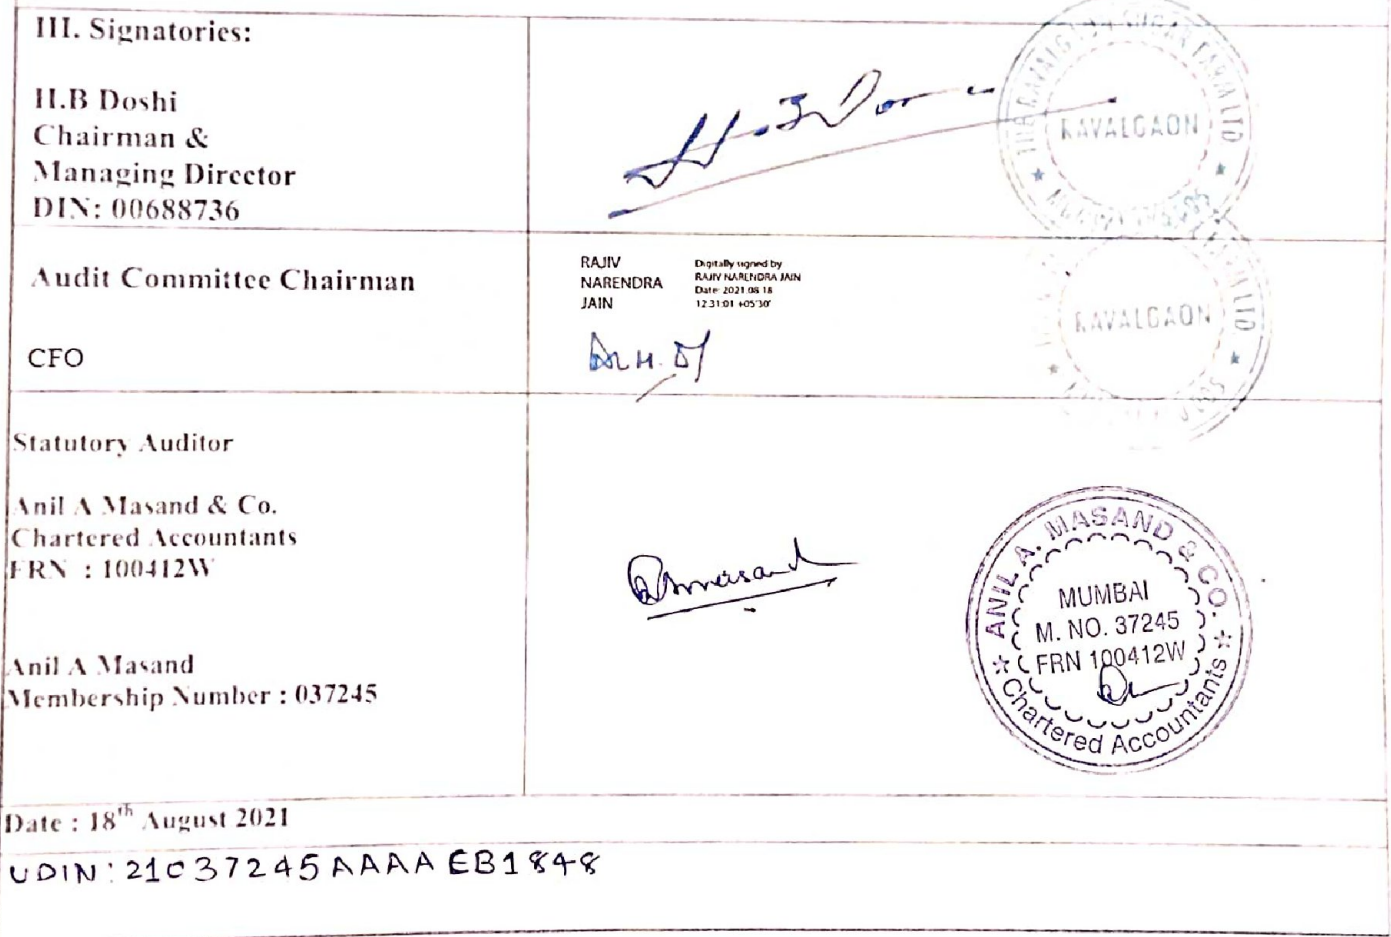 III. Signatories:
H.B Doshi
Chairman &
Managing Director
DIN: 00688736
RAVALGAON
Audit Committee Chairman
RAJIV
NARENDRA
JAIN
Digitally signed by
RAJIV NARENDRA JAIN
Date: 2021.08.18
12:31:01 +05'30'
RAVALGAON
CFO
Statutory Auditor
Anil A Masand & Co.
Chartered Accountants
FRN : 100412W
Amasand
ANIL A. MASAND & CO.
MUMBAI
M. NO. 37245
FRN 100412W
Chartered Accountants
Anil A Masand
Membership Number : 037245
Date : 18th August 2021
UDIN: 21037245AAAAEB1848